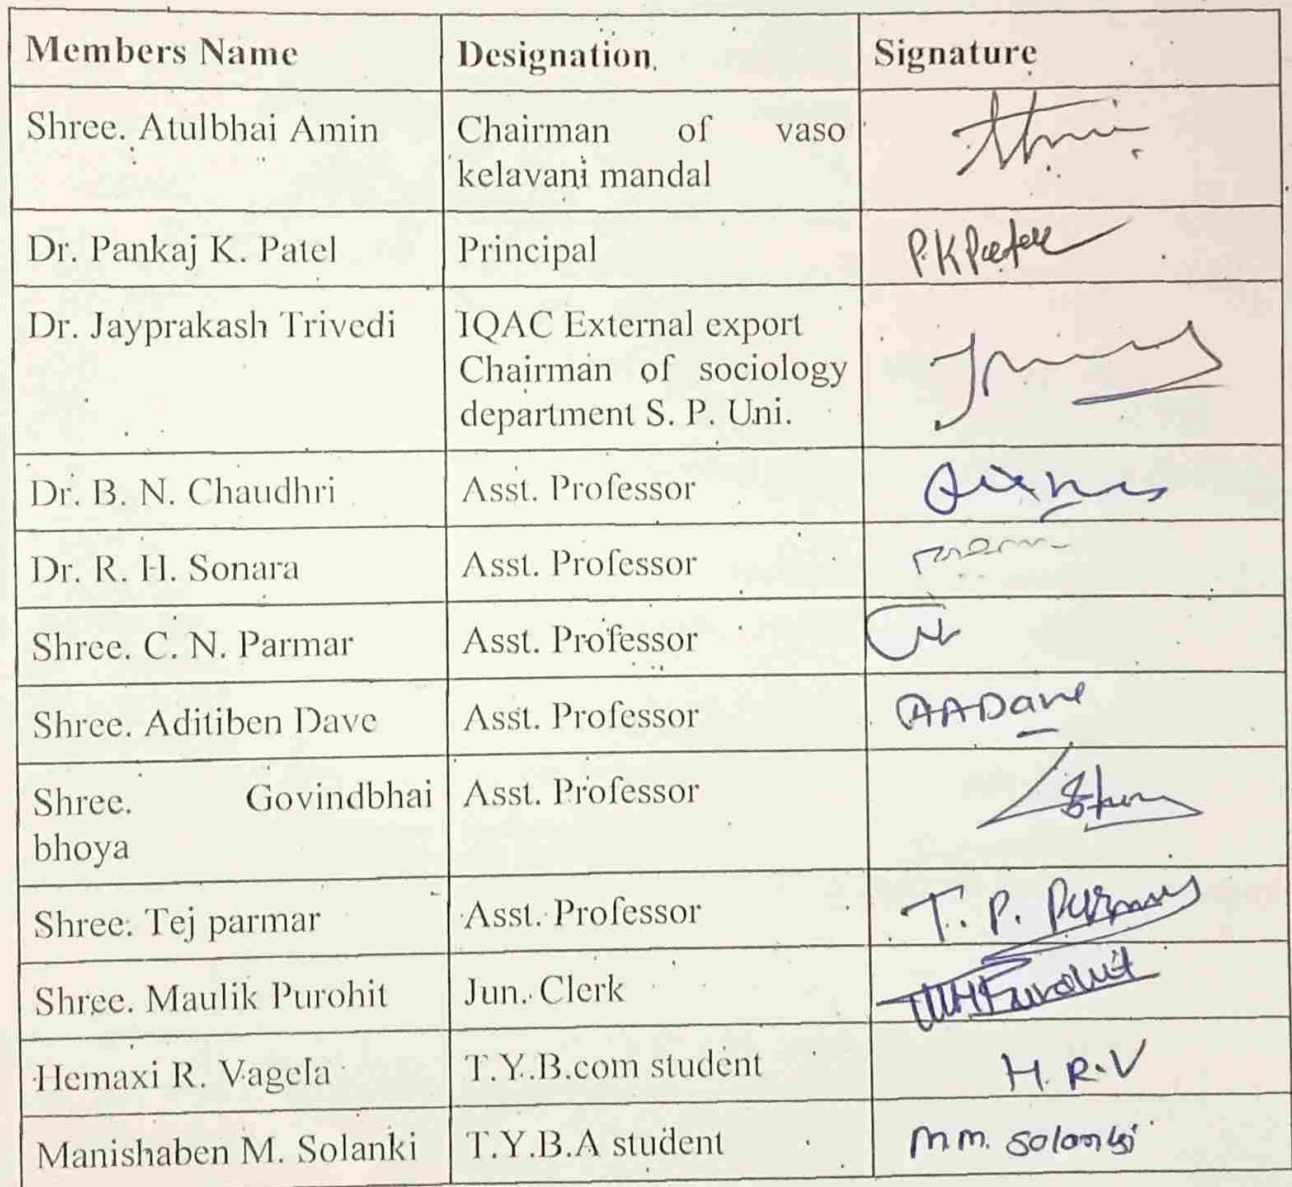 Members Name Designation Signature
Shree. Atulbhai Amin Chairman of vaso
kelavani mandal
Dr. Pankaj K. Patel Principal P.K.Patel
Dr. Jayprakash Trivedi IQAC External export
Chairman of sociology
department S. P. Uni.
Dr. B. N. Chaudhri Asst. Professor
Dr. R. H. Sonara Asst. Professor
Shree. C. N. Parmar Asst. Professor
Shree. Aditiben Dave Asst. Professor AADave
Shree. Govindbhai Asst. Professor
bhoya
Shree. Tej parmar Asst. Professor T. P. Parmar
Shree. Maulik Purohit Jun. Clerk MHPurohit
Hemaxi R. Vagela T.Y.B.com student H. R. V
Manishaben M. Solanki T.Y.B.A student m m. solanki